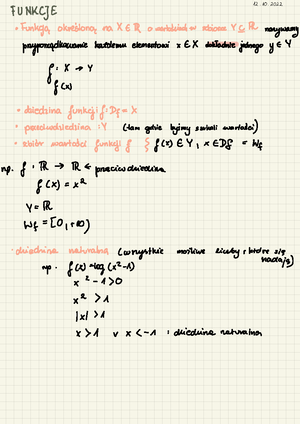 FUNKCJE
12.10.2022
• Funkcją określoną na X∈ℝ o wartościach w zbiorze Y⊆ℝ nazywamy
przyporządkowanie każdemu elementowi x∈X dokładnie jednego y∈Y
f: X → Y
f(x)
• dziedzina funkcji f: Df = X
• przeciwdziedzina: Y (tam gdzie byśmy szukali wartości)
• zbiór wartości funkcji f { f(x) ∈ Y, x ∈ Df } = Wf
np. f: ℝ → ℝ ← przeciwdziedzina
f(x) = x²
Y = ℝ
Wf = [0, +∞)
• dziedzina naturalna (wszystkie możliwe liczby, które się
nadają)
np. f(x) = log(x²-1)
x² - 1 > 0
x² > 1
|x| > 1
x > 1 v x < -1 : dziedzina naturalna